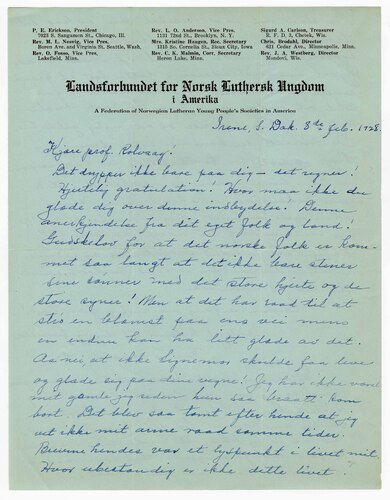 P. E. Erickson, President
7023 S. Sangamon St., Chicago, Ill.
Rev. M. L. Nesvig, Vice Pres.
Boren Ave. and Virginia St., Seattle, Wash.
Rev. O. Fosso, Vice Pres.
Lakefield, Minn.
Rev. L. O. Anderson, Vice Pres.
1151 72nd St., Brooklyn, N. Y.
Mrs. Kristine Haugen, Rec. Secretary
1315 So. Cornelia St., Sioux City, Iowa
Rev. C. K. Malmin, Cor. Secretary
Heron Lake, Minn.
Sigurd A. Carlson, Treasurer
R. F. D. 3, Chetek, Wis.
Chr. Brodahl, Director
621 Cedar Ave., Minneapolis, Minn.
Rev. J. A. Westberg, Director
Mondovi, Wis.
Landsforbundet for Norsk Luthersk Ungdom
i Amerika
A Federation of Norwegian Lutheran Young People's Societies in America
Irene, S. Dak. 8de feb. 1928.
Kjære prof. Rolvaag!
Det drypper ikke bare paa dig – det regner!
Hjertelig gratulation! Hvor maa ikke du
glæde dig over denne indbydelse! Denne
anerkjendelse fra dit eget folk og land!
Gudskelov for at det norske folk er kom-
met saa langt at det ikke bare stener
sine sønner med det store hjerte og de
store syner! Men at det har raad til at
strø en blomst paa ens vei mens
en endnu kan ha litt glæde av det.
Aa nei at ikke Signemor skulde faa leve
og glæde sig paa dine vegne! Jeg har ikke været
met gamle jeg siden hun saa braatt kom
bort. Det blev saa tomt efter hende at jeg
vet ikke mit arme raad somme tider.
Brevene hendes var et lyspunkt i livet mit.
Hvor ubestandig er ikke dette livet!